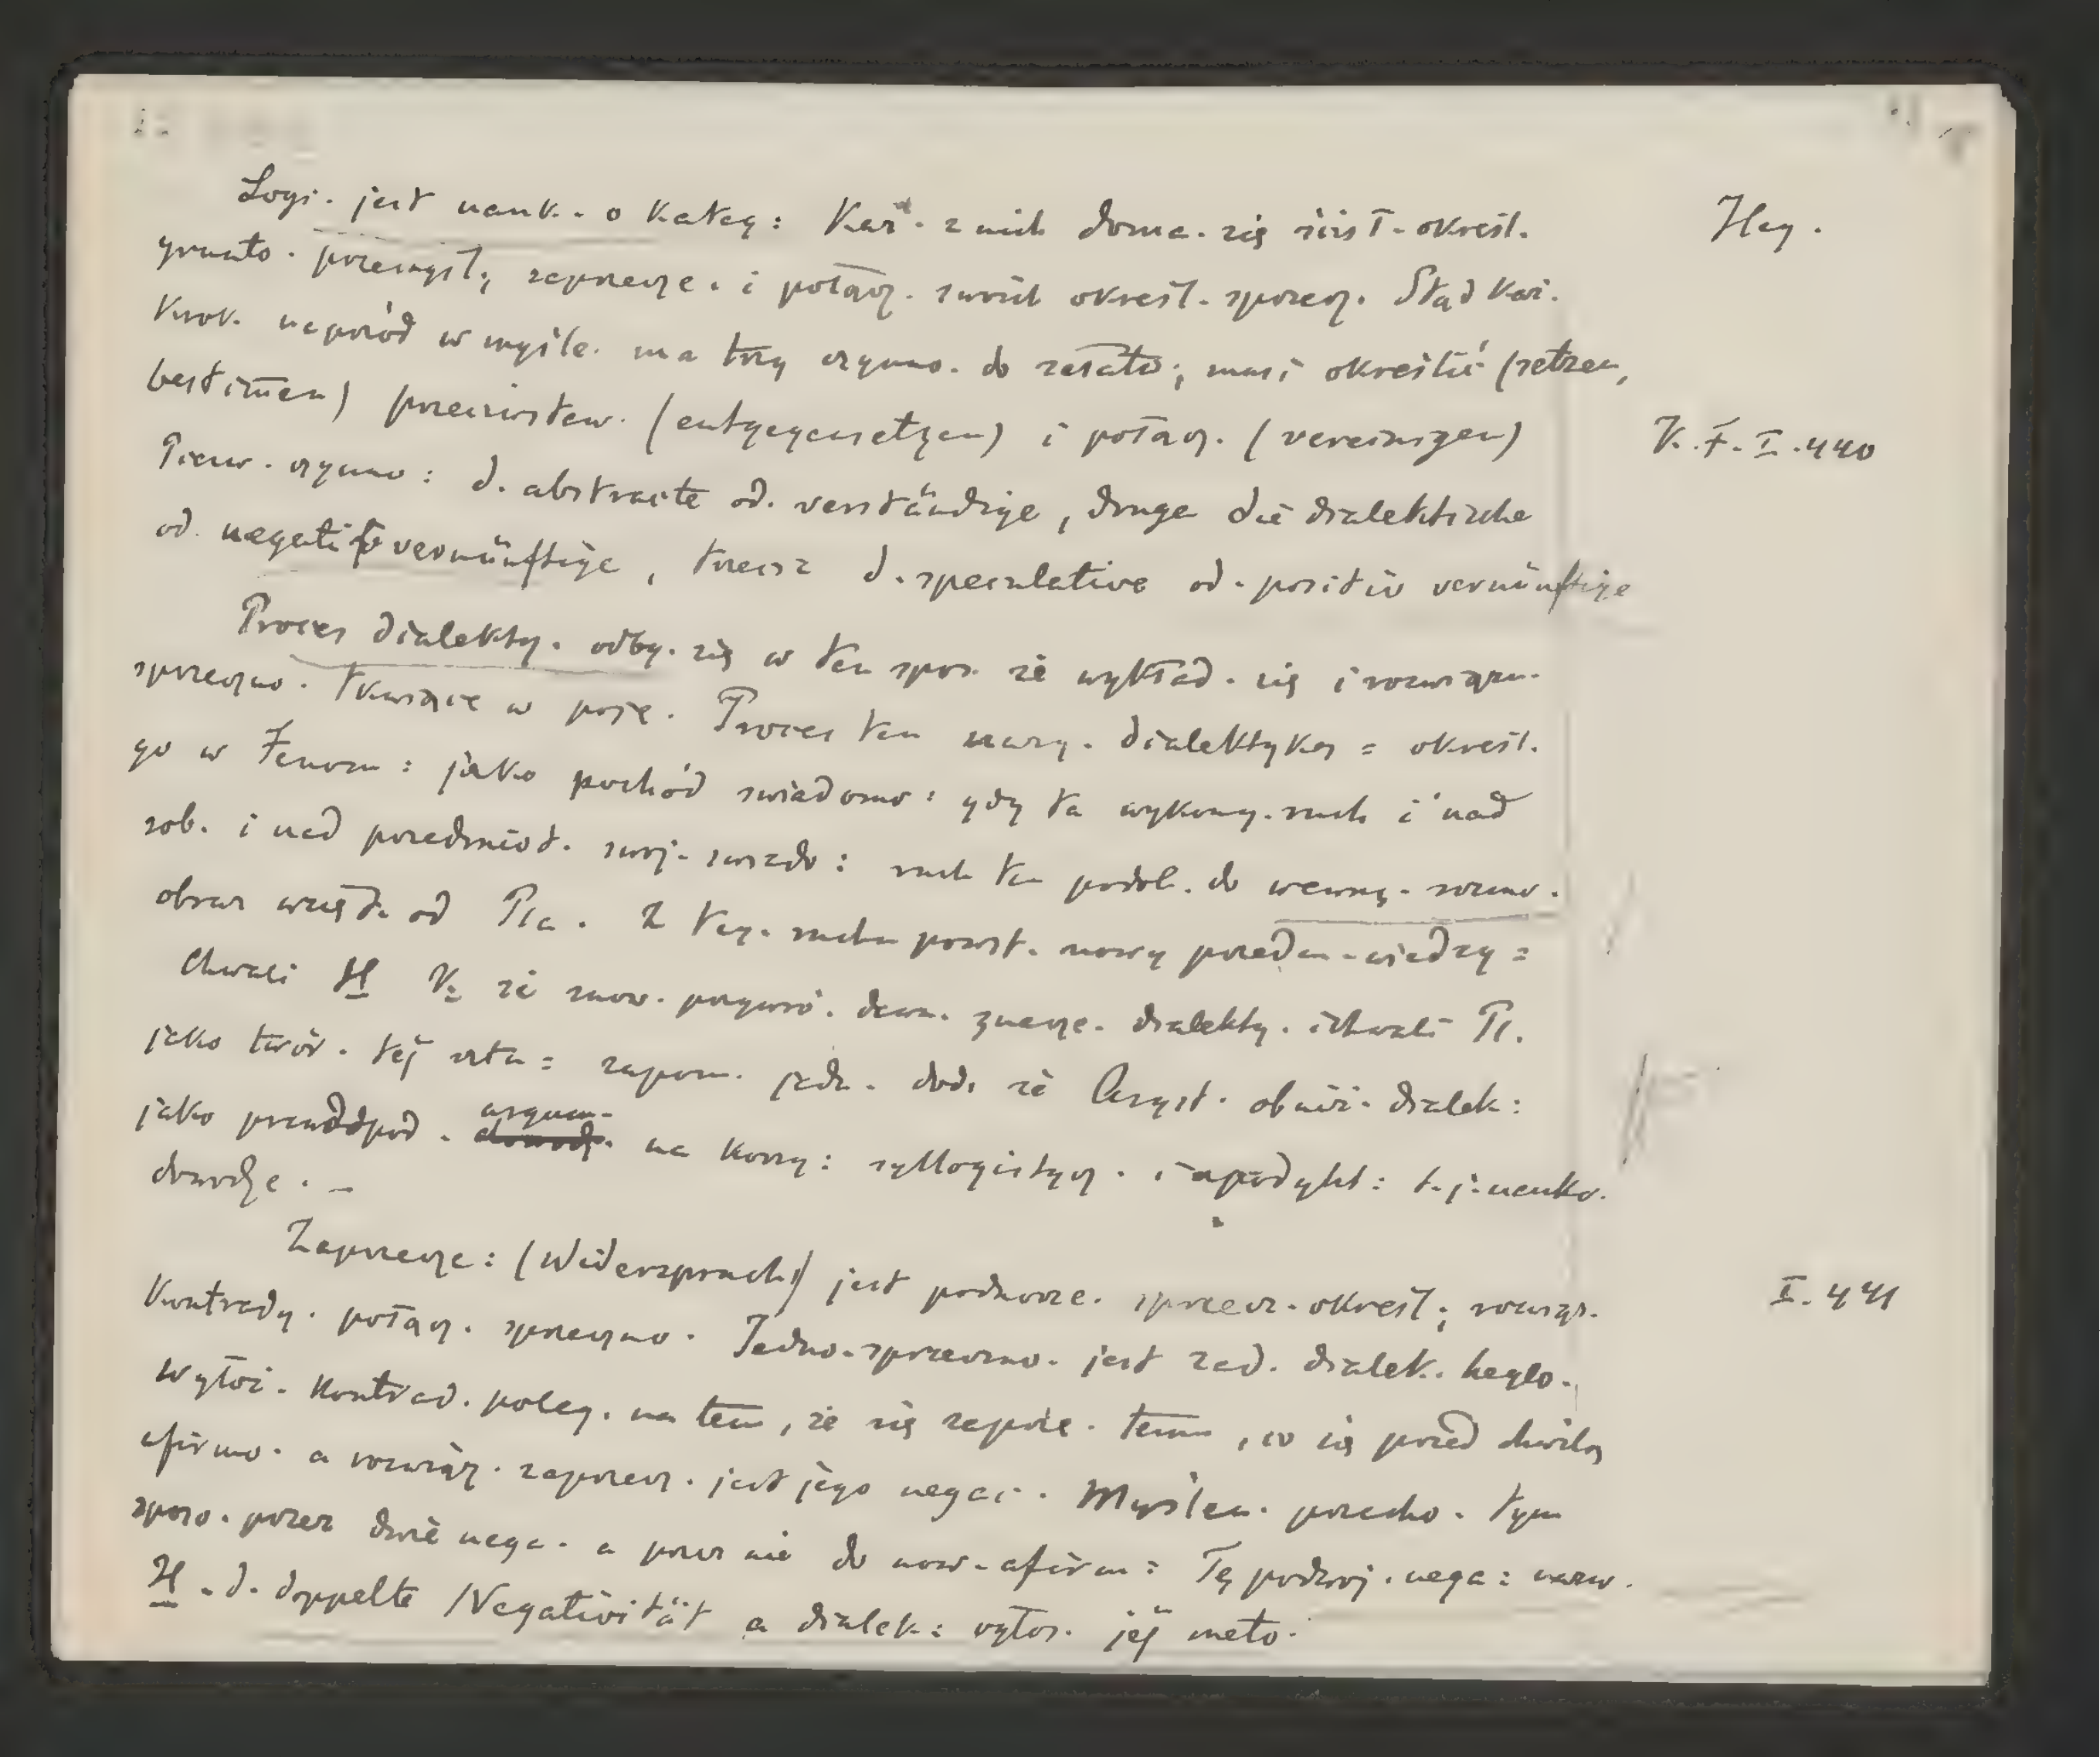 Logi. jest nauk. o kateg: Każ. z nich doma. się ścisł. określ.
Heg.
grunto. przemyśl; zaprzecze. i połącz. swoich określ. sprzecz. Stąd każ.
krok. naprzód w myśle. ma trzy czynno. do załatw; musi określić (setzen,
bestimmen) przeciwstaw. (entgegensetzen) i połącz. (vereinigen)
K. F. I. 440
Pierw. czynno: d. abstracte od. verständige, druga die dialektische
od. negativ vernünftige, trzecia d. speculative od. positiv vernünftige
Proces dialekty. odby. się w ten spos. że wykład. się i rozwiązu.
sprzeczno. tkwiące w poję. Proces ten nazy. dialektyką = określ.
go w Fenom: jako pochód świadomo: gdy ta wykony. ruch i nad
sob. i nad przedmiot. swoj. świado: ruch ten podob. do wewnę. rozmo.
obraz wzięt. od Pla. Z teg. ruchu powst. nowy przedm. wiedzy =
Chwali H K. że znow. przywró. dawn. znacze. dialekty. i chwali Pl.
jako twór. tej sztu = zapom. jedn. dod. że Aryst. obniż. dialek:
jako prawdopod. argum. na korzy: syllogistycz. i apodykt: t. j. nauko.
dowodze. —
Zaprzecze: (Widerspruch) jest podnosze. sprzecz. określ; rozwiąz.
I. 441
kontrady. połącz. sprzeczno. Jedno. sprzeczno. jest zad. dialek. heglo.
Wyłoż. kontrad. poleg. na tem, że się zaprze. temu, co się przed chwilą
afirmo. a rozwiąz. zaprzecz. jest jego negac. Myślen. przecho. tym
sposo. przez dwie nega. a przez nie do now. afirm: Tę podwój. nega: nazw.
H. d. doppelte Negativität a dialek: wyłoż. jej meto.